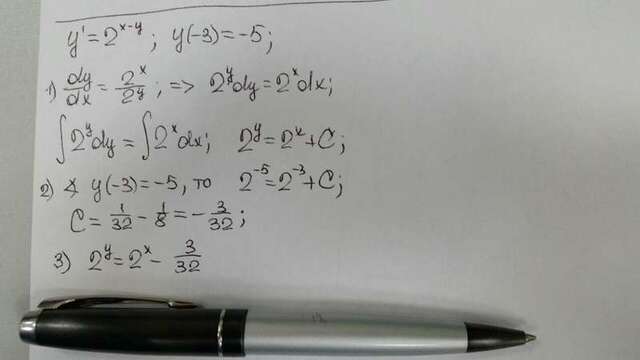 y' = 2^{x-y}; y(-3) = -5;
1) \frac{dy}{dx} = \frac{2^x}{2^y}; => 2^y dy = 2^x dx;
∫ 2^y dy = ∫ 2^x dx; 2^y = 2^x + C;
2) ∢ y(-3) = -5, то 2^{-5} = 2^{-3} + C;
C = \frac{1}{32} - \frac{1}{8} = -\frac{3}{32};
3) 2^y = 2^x - \frac{3}{32}